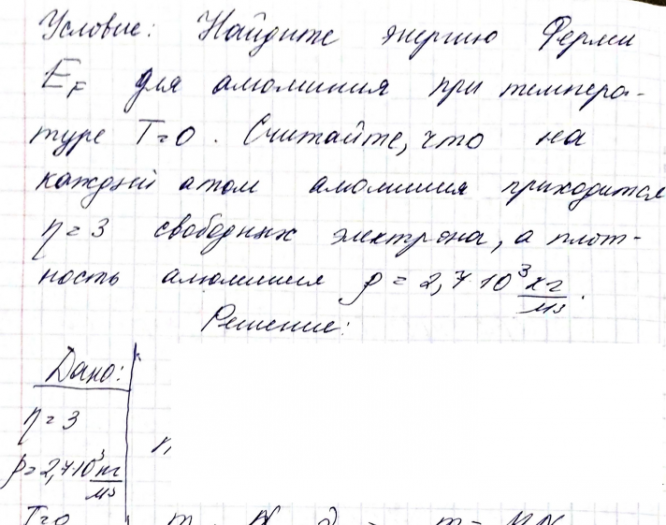 Условие: Найдите энергию Ферми
E_F для алюминия при темпера-
туре T=0. Считайте, что на
каждый атом алюминия приходится
η=3 свободных электрона, а плот-
ность алюминия ρ = 2,7·10³ кг/м³.
Решение:
Дано:
η=3
ρ=2,7·10³ кг/м³
T=0